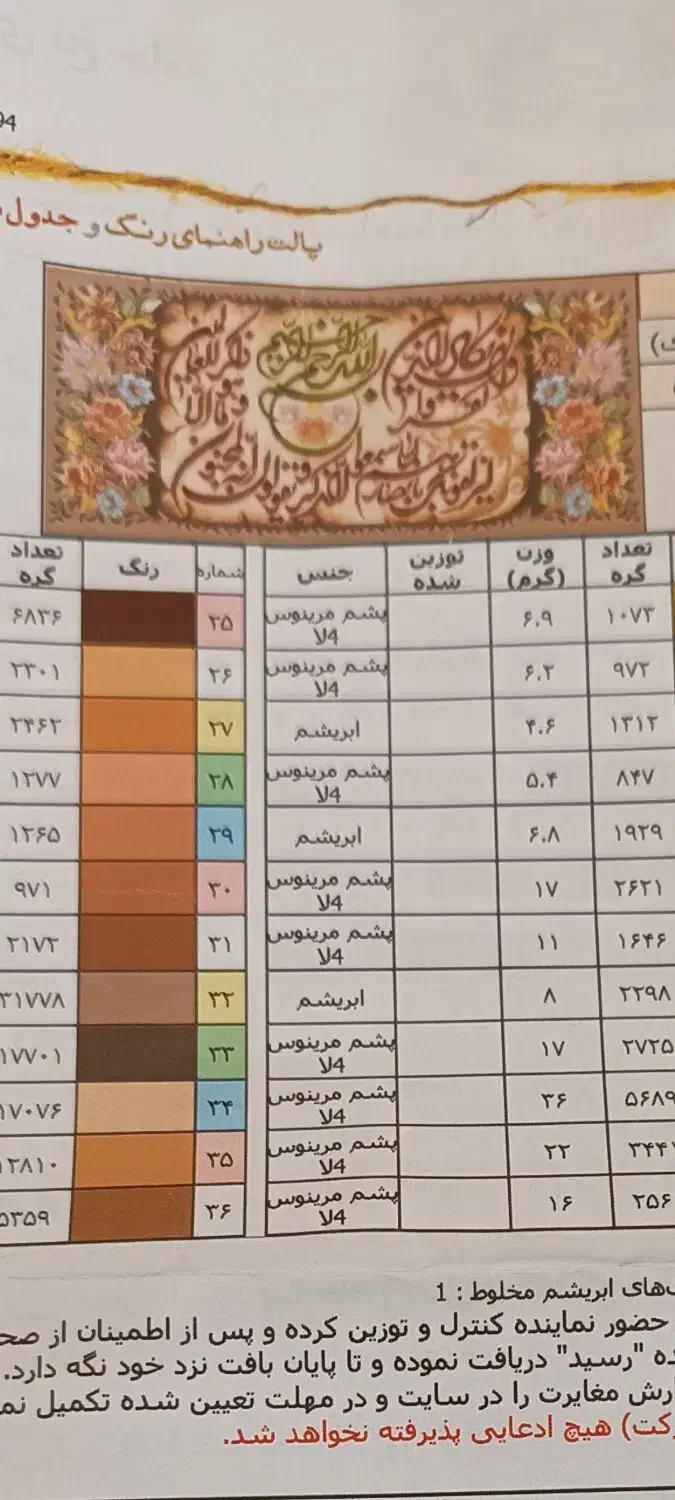 94
پالت راهنمای رنگ و جدول
بسم الله الرحمن الرحیم
تعداد گره وزن (گرم) توزین شده جنس شماره رنگ تعداد گره
۱۰۷۳ ۶.۹ پشم مرینوس 4لا ۲۵ ۶۸۳۶
۹۷۲ ۶.۲ پشم مرینوس 4لا ۲۶ ۲۳۰۱
۱۳۱۲ ۴.۶ ابریشم ۲۷ ۲۴۶۲
۸۴۷ ۵.۴ پشم مرینوس 4لا ۲۸ ۱۲۷۷
۱۹۲۹ ۶.۸ ابریشم ۲۹ ۱۲۶۵
۲۶۲۱ ۱۷ پشم مرینوس 4لا ۳۰ ۹۷۱
۱۶۴۶ ۱۱ پشم مرینوس 4لا ۳۱ ۲۱۷۲
۲۲۹۸ ۸ ابریشم ۳۲ ۳۱۷۷۸
۲۷۲۵ ۱۷ پشم مرینوس 4لا ۳۳ ۱۷۷۰۱
۵۶۸۹ ۳۶ پشم مرینوس 4لا ۳۴ ۱۷۰۷۶
۲۲ پشم مرینوس 4لا ۳۵ ۱۲۸۱۰
۱۶ پشم مرینوس 4لا ۳۶ ۵۳۵۹
های ابریشم مخلوط : 1
حضور نماینده کنترل و توزین کرده و پس از اطمینان از
"رسید" دریافت نموده و تا پایان بافت نزد خود نگه دارد.
مغایرت را در سایت و در مهلت تعیین شده تکمیل
هیچ ادعایی پذیرفته نخواهد شد.